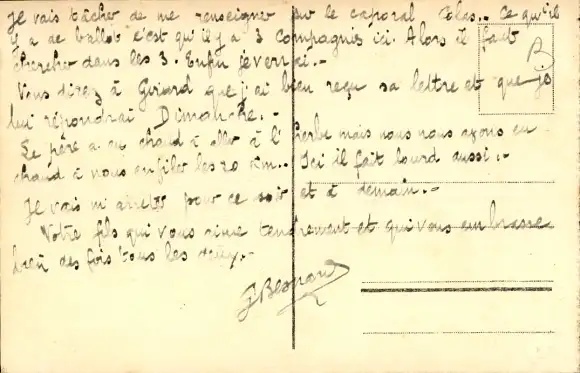 Je vais tâcher de me renseigner sur le caporal Colas.- Ce qu'il
y a de ballot c'est qu'il y a 3 Compagnies ici. Alors il faut
chercher dans les 3. Enfin je verrai.-
B
Vous direz à Girard que j'ai bien reçu sa lettre et que je
lui répondrai Dimanche.-
Le père a eu chaud à aller à l'herbe mais nous nous avons eu
chaud à nous enfiler les 20 km.- Ici il fait lourd aussi.-
Je vais m'arrêter pour ce soir et à demain.-
Votre fils qui vous aime tendrement et qui vous embrasse
bien des fois tous les deux.-
Besnard